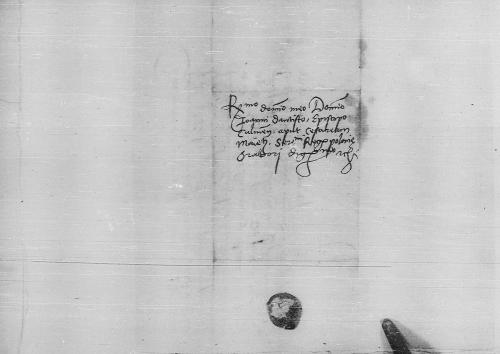 R.mo domino meo Domino
Joanni Dantisco, Episcopo
Culmen. apud Cesaream
Maiest. Ser.mi Regis polonie
Oratori dig.mo